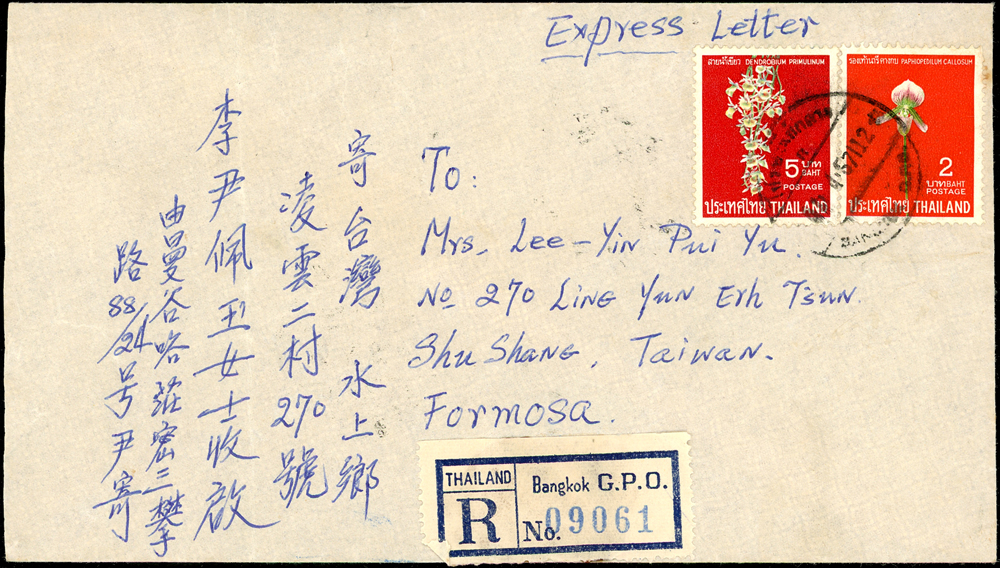 Express Letter
สายน้ำเขียว DENDROBIUM PRIMULINUM
5 บาท
BAHT
POSTAGE
ประเทศไทย THAILAND
รองเท้านารีคางกบ PAPHIOPEDILUM CALLOSUM
2
บาท BAHT
POSTAGE
ประเทศไทย THAILAND
To:
Mrs. Lee-Yin Pui Yu.
No 270 Ling Yun Erh Tsun.
Shu Shang, Taiwan.
Formosa.
寄台灣 水上鄉
凌雲二村270號
李尹佩玉女士收啟
由曼谷 三攀
路88/24号尹寄
THAILAND
R
Bangkok G.P.O.
No. 09061